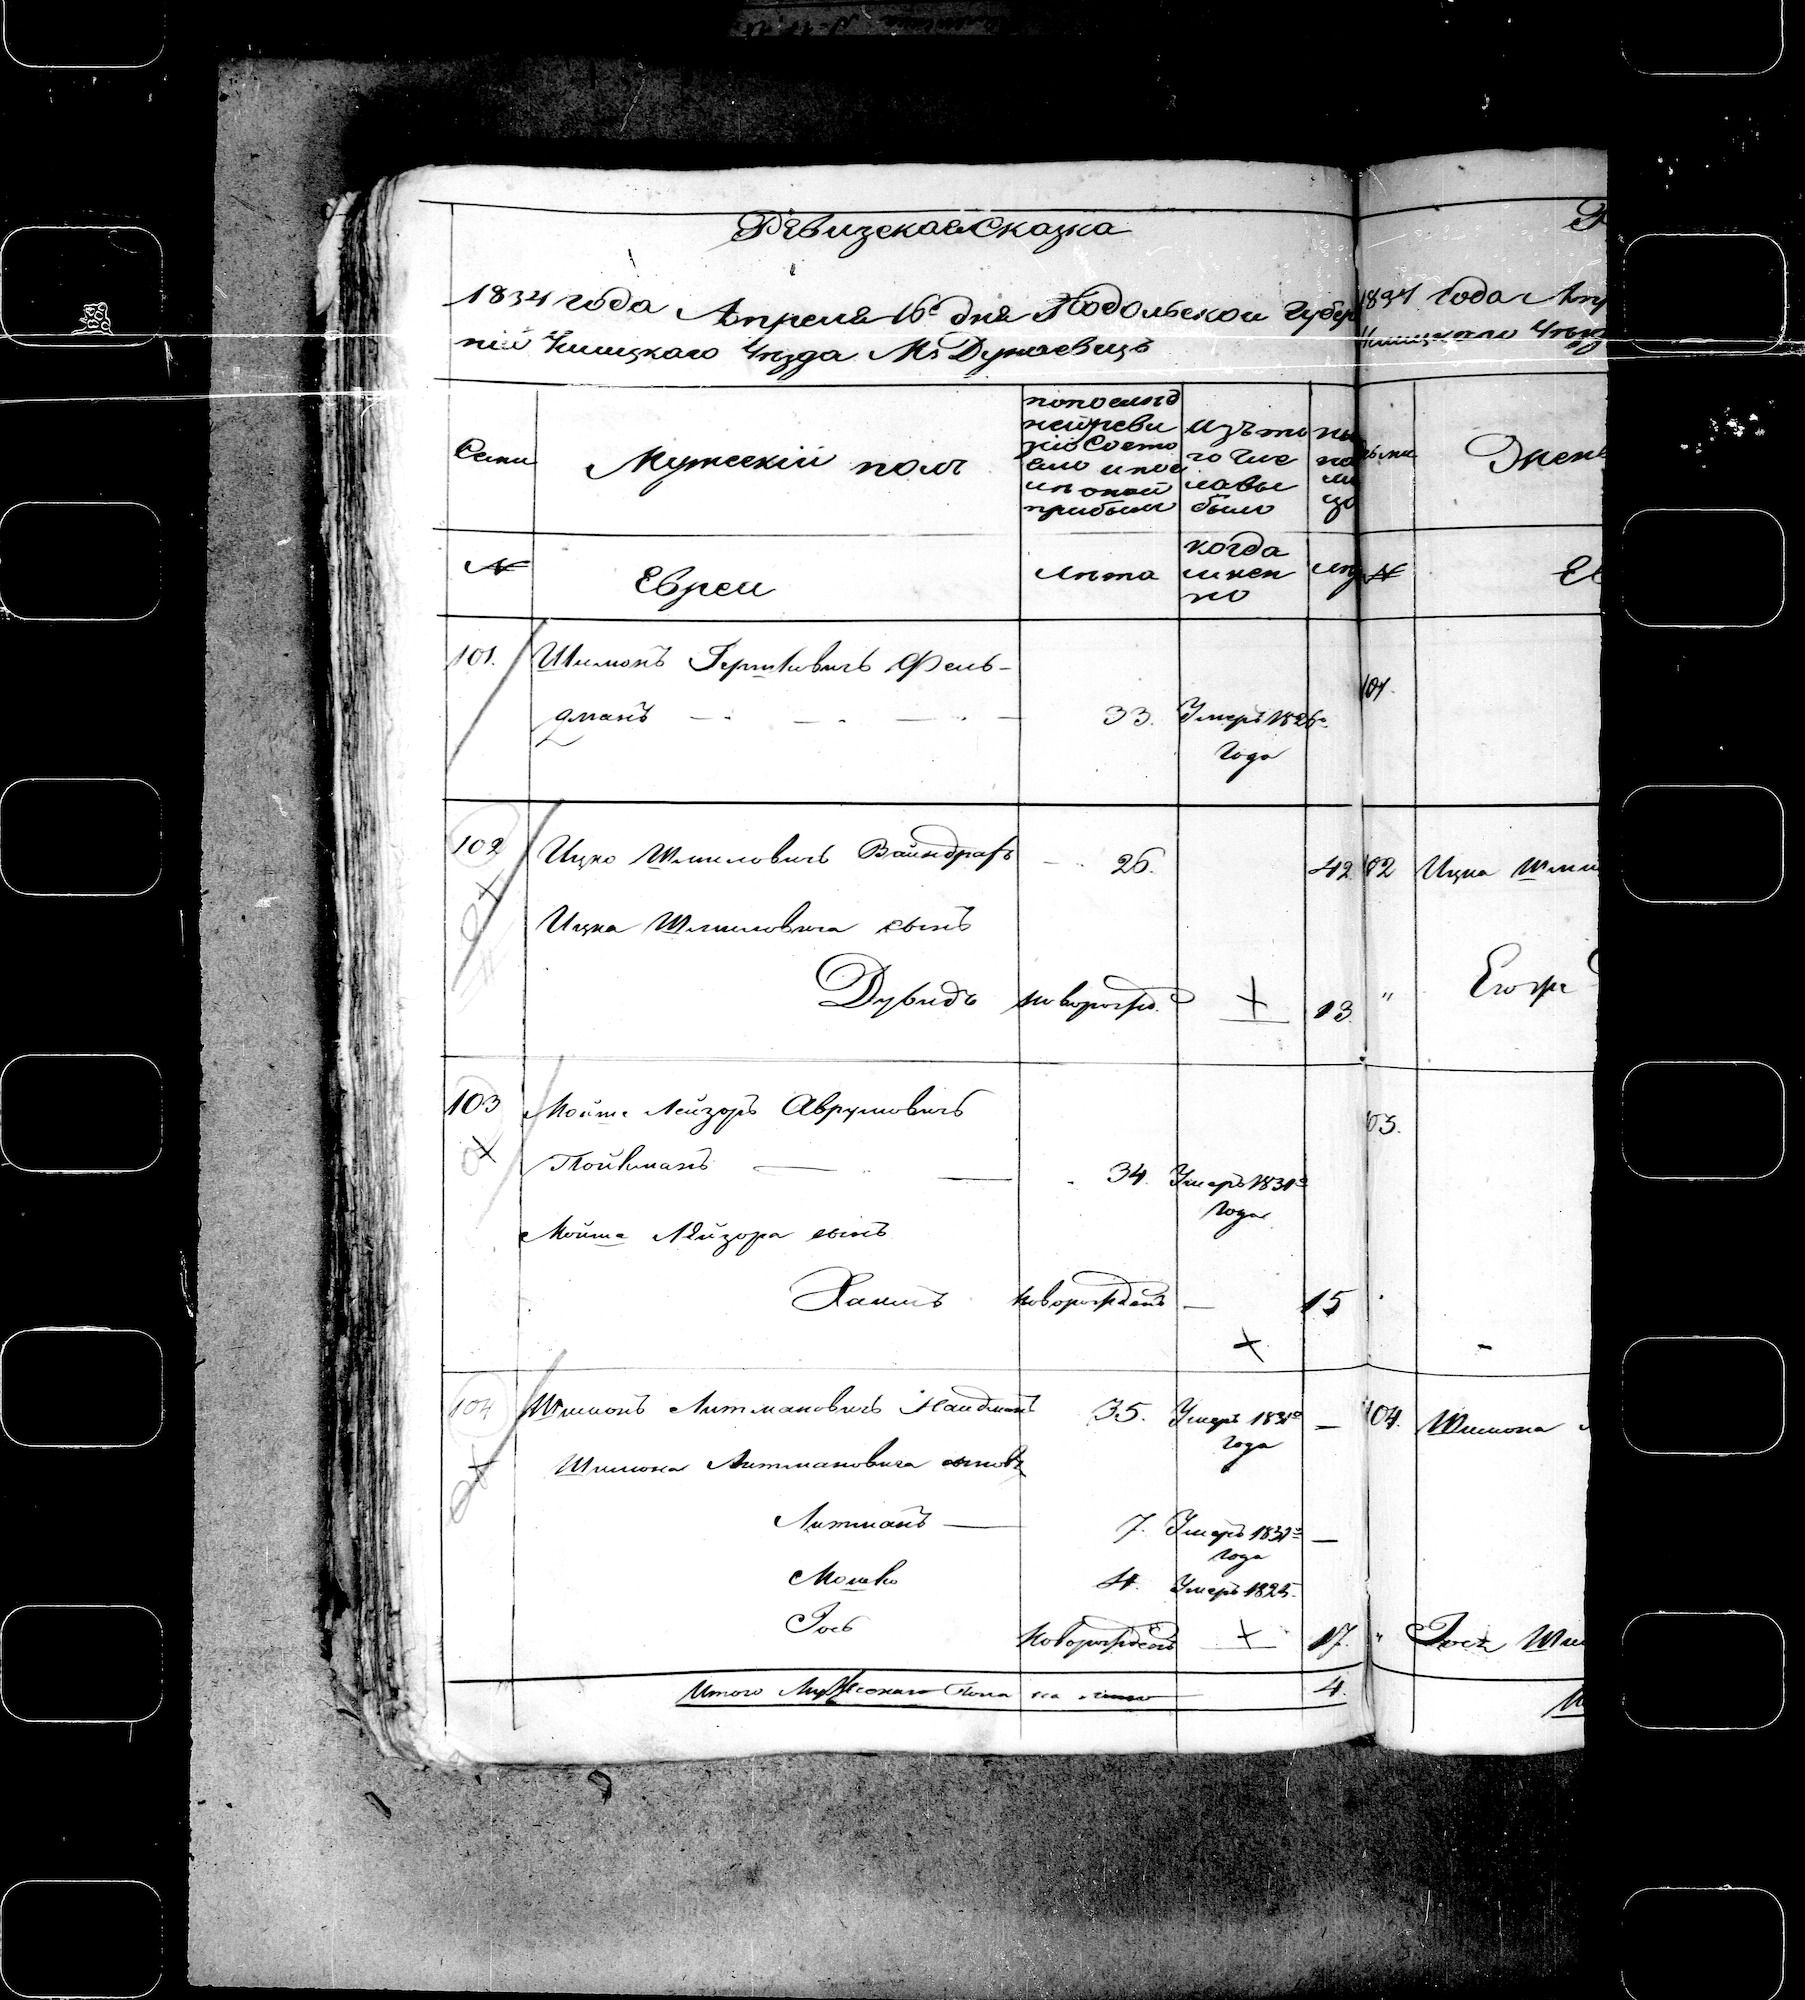 Ревизская Сказка
1834 года Апреля 16го дня Подольской Губер
ній Ушицкаго Уѣзда Мѣ Дунаевецъ
Семи
Мужескій полъ
попослѣд
ней реви
зіи Состо
яло и пос
лѣ оной
прибыло
изъ то
го чис
ла вы
было
№
Евреи
лѣта
когда
имен
но
лѣ
101.
Шимонъ Гершковичъ Фель-
дманъ
33.
Умеръ 1826го
года
102
Ицко Шмиловичъ Вайндрафъ
26.
42.
Ицка Шмиловича сынъ
Дувидъ
новорожд.
+
13.
103
Мойше Лейзоръ Аврумовичъ
Тойвманъ
34.
Умеръ 1831го
года
Мойше Лейзора сынъ
Хаимъ
новорожденъ
15
+
104
Шимонъ Литмановичъ
35.
Умеръ 1831го
года
—
Шимона Литмановича сыновъя
Литманъ —
7.
Умеръ 1831го
года
—
Мошко
4.
Умеръ 1825.
Іосъ
новорожденъ
+
17.
Итого Мужескаго Пола на лицо
4.
1834 года Апр
Ушицкаго Уѣз
Женс
№
Ев
101.
102
Ицка Шми
"
103.
104.
Шимона
"
Іося Шим